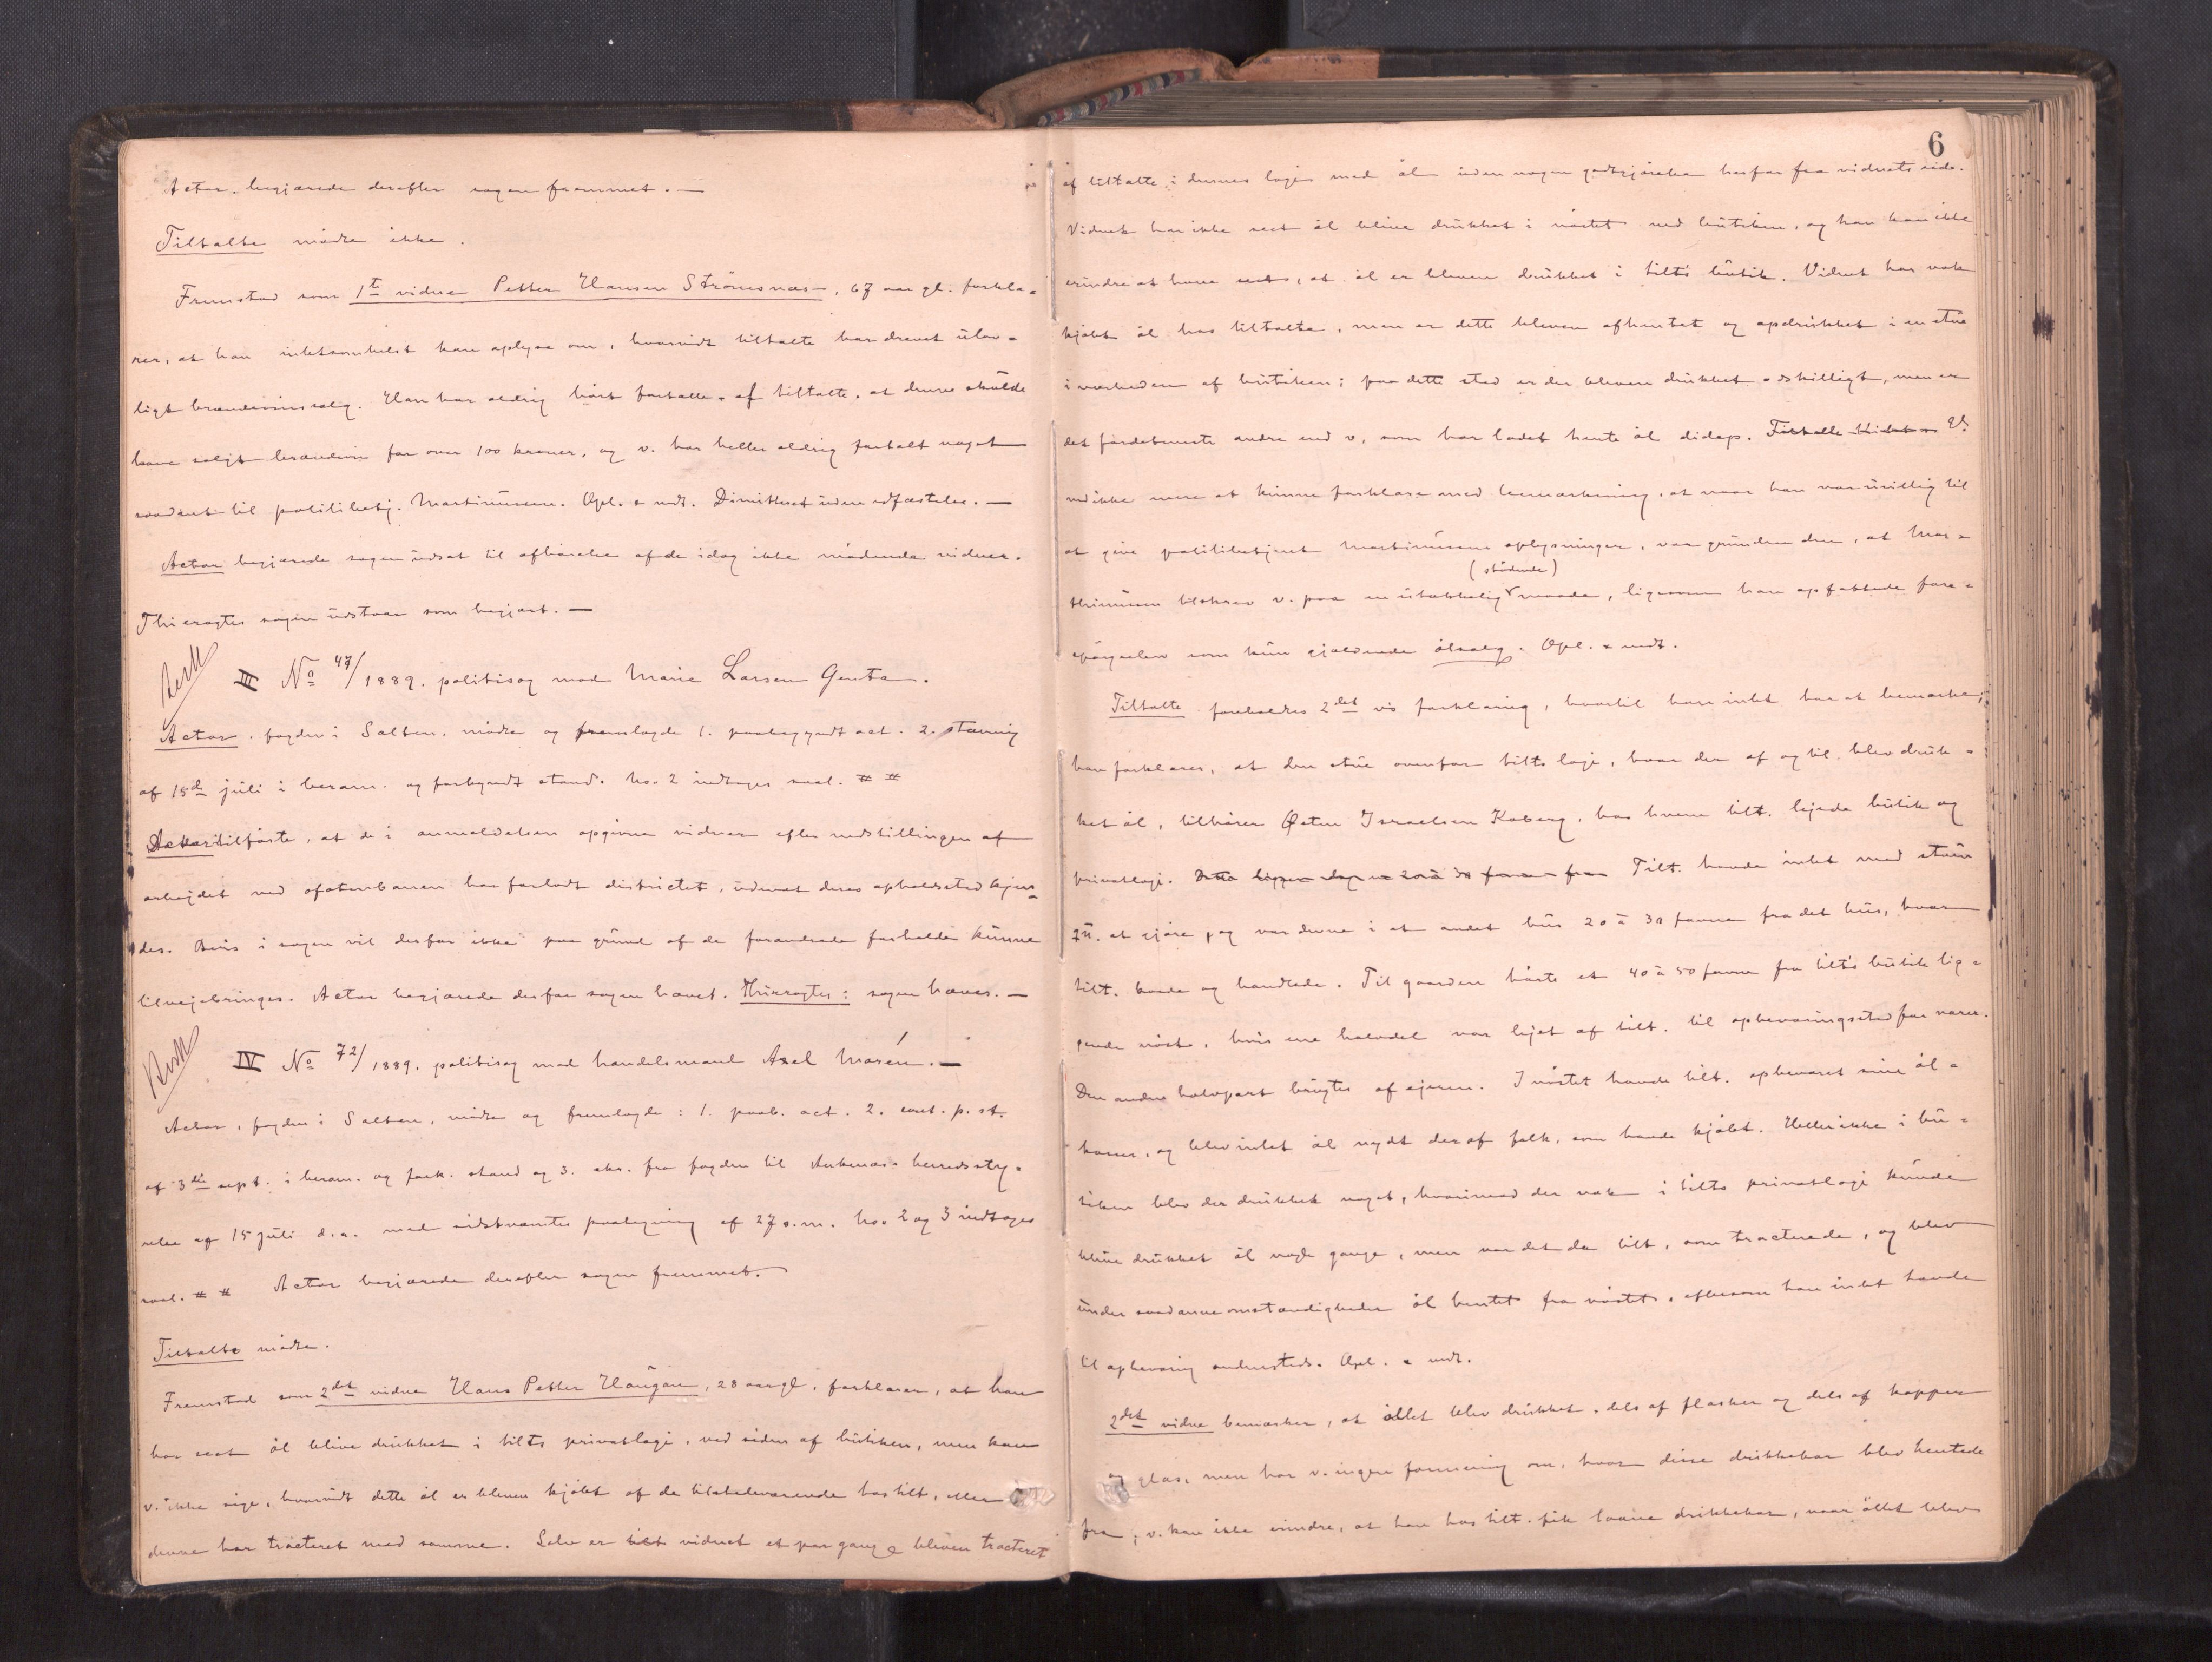 Actor begjærede derefter sagen fremmet. —
Tiltalte mødte ikke.
Fremstod som 1te vidne Petter Hansen Strömsnæs, 67 aar gl. forkla-
rer, at han intetsomhelst kan oplyse om, hvorvidt tiltalte har drevet ulov-
ligt brændevinssalg. Han har aldrig hørt fortalle af tiltalte, at denne skulde
have solgt brændevin for over 100 kroner, og v. har heller aldrig fortalt noget
saadant til politibetj. Martinusen. Opl. & vedt. Dimitteret uden edfæstelse. —
Actor begjærede sagen udsat til afhørelse af de idag ikke mødende vidner.
Thi eragtes sagen udstaar som begjært. —
III No 47/1889. politisag mod Marie Larsen Genta.
Actor, fogden i Salten, mødte og fremlagde 1. paabegyndt act. 2. stævning
af 15de juli i beram. og forkyndt stand. No. 2 indtages saal. # #
Actor tilførte, at de i anmeldelsen opgivne vidner efter nedstillingen af
arbejdet ved ofotenbanen har forladt districtet, uden at deres opholdssted kjen-
des. Bevis i sagen vil derfor ikke paa grund af de forandrede forholde kunne
tilvejebringes. Actor begjærede derfor sagen hævet. Thi eragtes: sagen hæves. —
IV No 72/1889. politisag mod handelsmand Axel Morén. —
Actor, fogden i Salten, mødte og fremlagde: 1. paab. act. 2. cont. p. st.
af 3die sept. i beram. og fork. stand og 3. skr. fra fogden til Ankenæs herredssty-
relse af 15 juli d.a. med sidstnævntes paategning af 27 s.m. No. 2 og 3 indtages
saal. # # Actor begjærede derefter sagen fremmet.
Tiltalte mødte.
Fremstod som 2det vidne Hans Petter Haugan, 28 aar gl. forklarer, at han
har seet øl blive drukket i tilts privatlogi, ved siden af butiken, men kan
v. ikke sige, hvorvidt dette øl er bleven kjøbt af de tilstedeværende hos tilt, eller
denne har tracteret med samme. Selv er vidnet et par gange bleven tracteret
6
af tiltalte i dennes logi med øl uden nogen godtgjørelse herfor fra vidnets side.
Vidnet har ikke seet øl blive drukket i nøstet ved butiken, og han kan ikke
erindre at have seet, at øl er bleven drukket i tilts butik. Vidnet har nok
kjøbt øl hos tiltalte, men er dette bleven afhentet og opdrukket i en stue
i nærheden af butiken; paa dette sted er der bleven drukket adskilligt, men er
det fordetmeste andre end v, som har ladet hente øl didop. V.
ved ikke mere at kunne forklare med bemærkning, at naar han var uvillig til
at give politibetjent Martinusen oplysninger, var grunden den, at Mar-
(stødende)
thinusen tilskrev v. paa en utækkelig maade, ligesom han opfattede fore-
spørgselen som kun gjældende ølsalg. Opl. & vedt.
Tiltalte foreholdtes 2det vs forklaring, hvortil han intet har at bemærke;
han forklarer, at den stue ovenfor tilts logi, hvor der af og til blev druk-
ket øl, tilhører Østen Israelsen Kaberg, hos hvem tilt. lejede butik og
privatlogi. Tilt. havde intet med stuen
at gjøre, og var denne i et andet hus 20 à 30 favne fra det hus, hvor
tilt. boede og handlede. Til gaarden hørte et 40 à 50 favne fra tilts butik lig-
gende nøst, hvis ene halvdel var lejet af tilt. til opbevaringssted for varer.
Den anden halvpart brugtes af ejeren. I nøstet havde tilt. opbevaret sine øl-
kasser, og blev intet øl nydt der af folk, som havde kjøbt. Heller ikke i bu-
tiken blev der drukket noget, hvorimod der nok i tilts privatlogi kunde
blive drukket øl nogle gange, men var det da tilt, som tracterede, og blev
under saadanne omstændigheder øl hentet fra nøstet, eftersom han intet havde
til opbevaring andensteds. Opl. & vedt.
2det vidne bemærker, at øllet blev drukket, dels af flasker og dels af kopper
og glas, men har v. ingen formening om, hvor disse drikkekar blev hentede
fra; v. kan ikke erindre, at han hos tilt. fik laane drikkekar, naar øllet blev